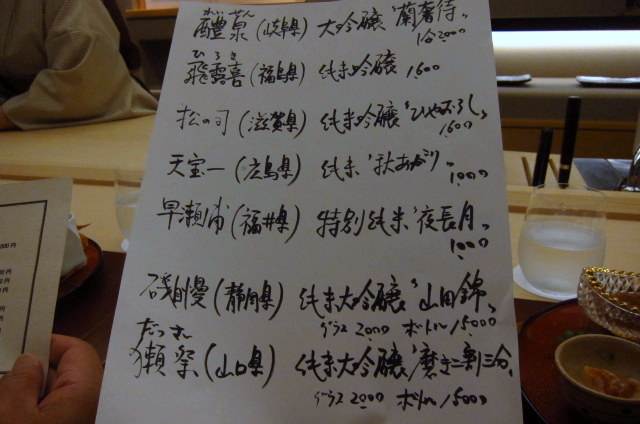 れいせん
醴泉(岐阜県) 大吟醸"蘭奢待"
1合2000
ひろき
飛露喜(福島県) 純米吟醸 1600
松の司(滋賀県) 純米吟醸"ひやおろし"
1600
天宝一(広島県) 純米"秋あがり"
1000
早瀬浦(福井県) 特別純米"夜長月"
1000
磯自慢(静岡県) 純米大吟醸"山田錦"
グラス2000 ボトル15000
だっさい
獺祭(山口県) 純米大吟醸"磨き二割三分"
グラス2000 ボトル15000